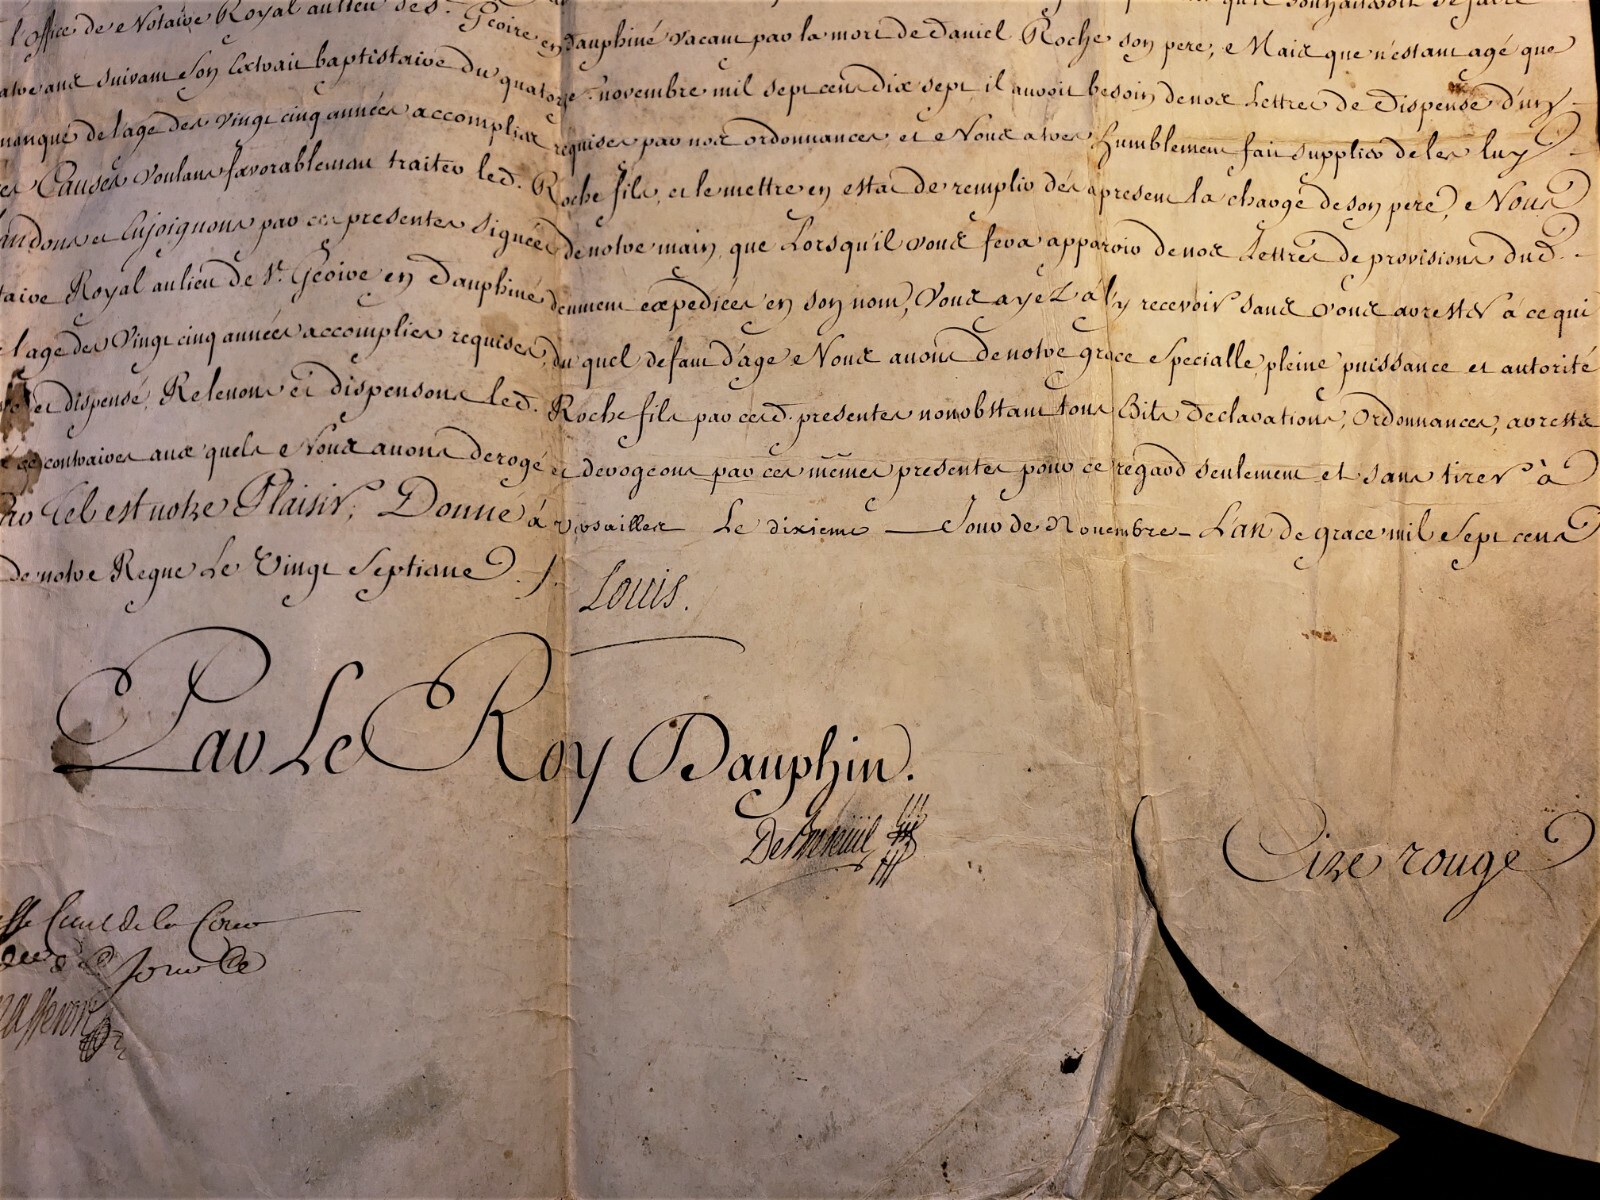 l'office de Notaire Royal au lieu de St. Geoire en Dauphiné vacant par la mort de Daniel Roche son pere, Mais que n'estant agé que
ans suivant son Extrait baptistaire du quatorze novembre mil sept cens dix sept il auroit besoin de nos Lettres de Dispense d'un
manque de l'age des vingt cinq années accomplies requises par nos ordonnances, et Nous a tres humblement fait supplier de les luy
Causes voulans favorablement traiter led. Roche fils, et le mettre en estat de remplir dés apresent la charge de son pere, Nous
mandons et Enjoignons par ces presentes signées de notre main, que Lorsqu'il vous fera apparoir de nos Lettres de provisions dud.
Royal au lieu de St. Geoire en Dauphiné deument expediées en son nom, Vous ayez à l'y recevoir sans vous arrester à ce qui
l'age des vingt cinq années accomplies requises, du quel defaut d'age Nous avons de notre grace specialle, pleine puissance et autorité
et dispensé, Relevons et dispensons led. Roche fils par cesd. presentes nonobstant tous Edits Declarations, Ordonnances, arrests
contraires aux quels Nous avons derogé et derogeons par ces mémes presentes pour ce regard seulement et sans tirer à
Tel est notre Plaisir, Donné à Versailles Le dixieme Jour de Novembre L'an de grace mil Sept cens
de notre Regne Le Vingt Septiane ./.
Louis.
Par Le Roy Dauphin.
Cire rouge
de la Cour